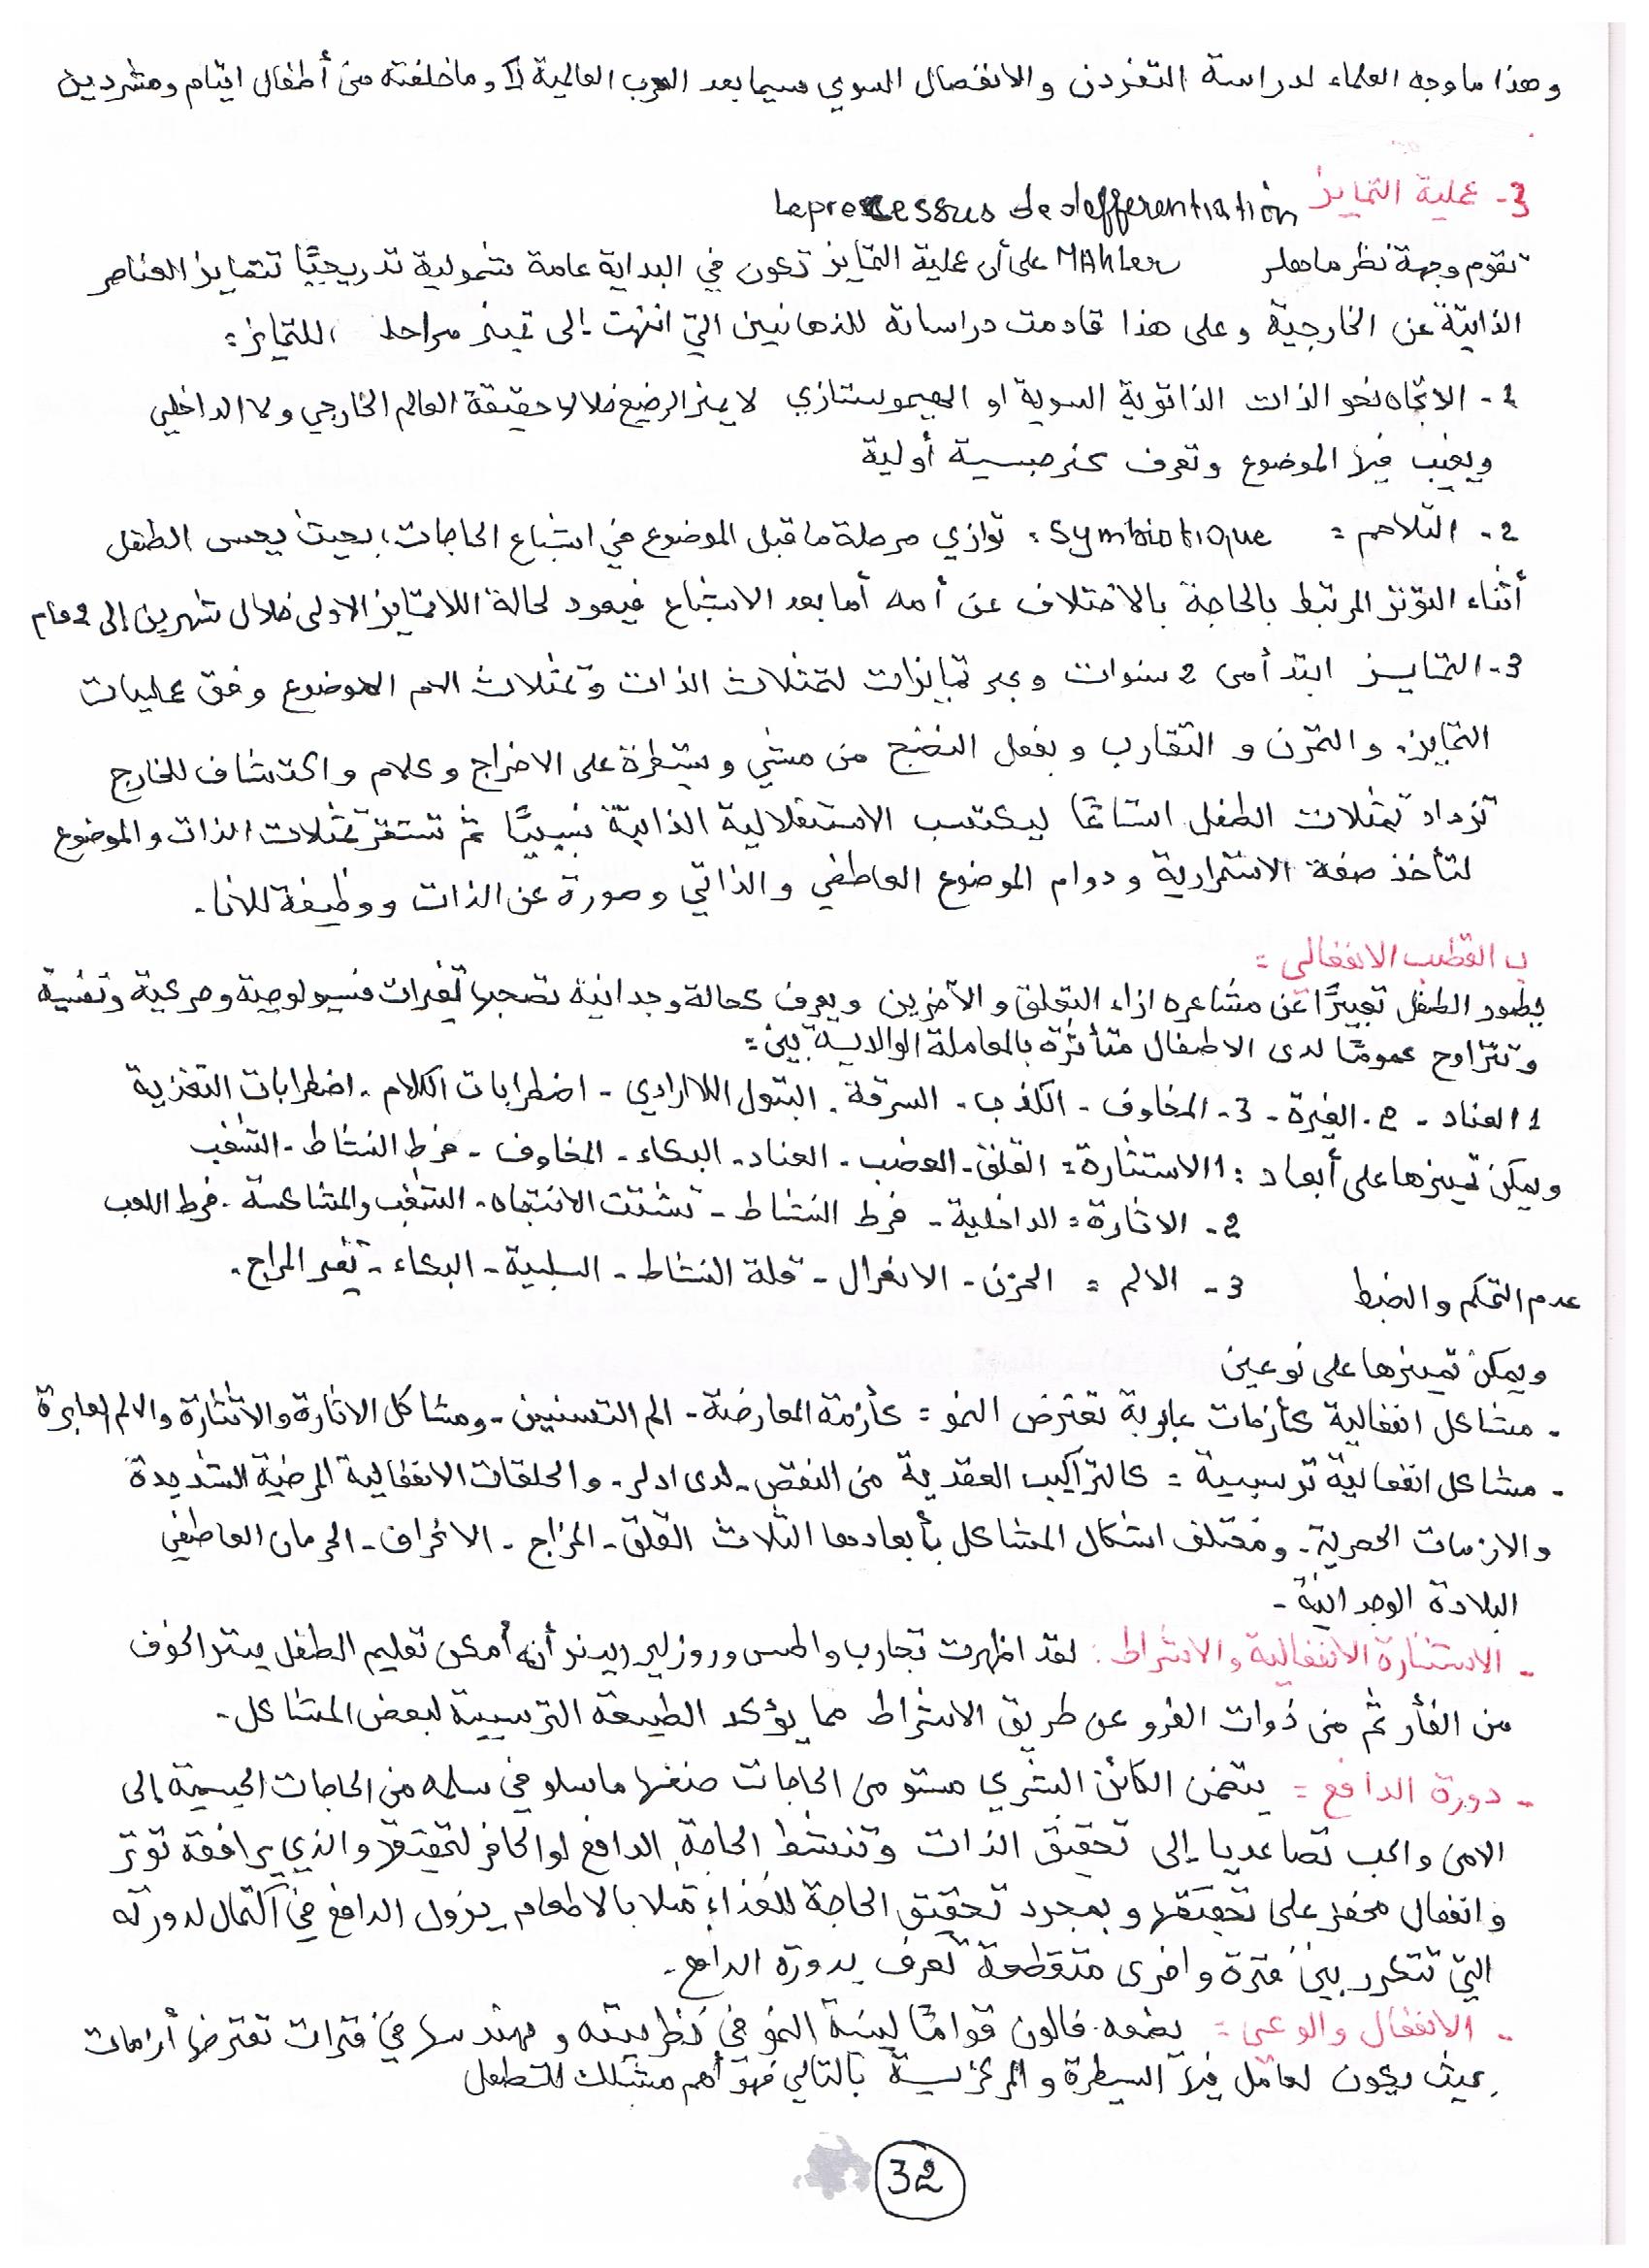 وهذا ما وجه العلماء لدراسة التفردن والانفصال السوي سيما بعد الحرب العالمية وما خلفته من أطفال ايتام ومشردين
3- عملية التمايز Le processus de defferentiation
تقوم وجهة نظر ماهلر MAhler على أن عملية التمايز تكون في البداية عامة شمولية تدريجيًا تتمايز العناصر
الذاتية عن الخارجية وعلى هذا قادمت دراساته للذهانيين التي انتهت إلى تميز مراحل للتمايز :
1- الاتجاه نحو الذات الذاتوية السوية او الهيموستازي لا يميز الرضيع خلالها حقيقة العالم الخارجي ولا الداخلي
ويغيب فيها الموضوع وتعرف كنرجسية أولية
2- التلاحم = Symbiotique : توازي مرحلة ما قبل الموضوع في اشباع الحاجات، بحيث يحس الطفل
أثناء التوتر المرتبط بالحاجة بالاختلاف عن أمه أما بعد الاشباع فيعود لحالة اللاتمايز الاولى خلال شهرين إلى 2 عام
3- التمايز ابتدأ من 2 سنوات وعبر تمايزات لتمثلات الذات وتمثلات الموضوع وفق عمليات
التمايز. والتمرن والتقارب وبفعل النضج من مشي وسيطرة على الاخراج وكلام واكتشاف للخارج
تزداد تمثلات الطفل اتساعًا ليكتسب الاستقلالية الذاتية نسبيًا ثم تستقر تمثلات الذات والموضوع
لتأخذ صفة الاستمرارية ودوام الموضوع العاطفي والذاتي وصورة عن الذات ووظيفة للانا.
ب القطب الانفعالي =
يطور الطفل تعبيرًا عن مشاعره ازاء التعلق والآخرين ويعرف كحالة وجدانية تصحبها تغيرات فسيولوجية وحركية ونفسية
وتتراوح عمومًا لدى الاطفال متأثرة بالمعاملة الوالدية بين =
1 العناد - 2. الغيرة - 3- المخاوف - الكذب - السرقة. التبول اللاارادي - اضطرابات الكلام. اضطرابات التغذية
ويمكن تميزها على أبعاد : 1 الاستثارة = القلق - الغضب - العناد - البكاء - المخاوف - فرط النشاط - الشغب
2- الاثارة = الداخلية - فرط النشاط - تشتت الانتباه - الشغب والمشاكسة. فرط اللعب
عدم التحكم والضبط 3- الالم = الحزن - الانعزال - قلة النشاط - السلبية - البكاء - تغير المزاج.
ويمكن تميزها على نوعين
- مشاكل انفعالية كأزمات عابرة تعترض النمو = كأزمة المعارضة - الم التسنين - ومشاكل الاثارة والاستثارة والالم العابرة
- مشاكل انفعالية ترسبية = كالتراكيب العقدية من النقص - لدى ادلر - والحلقات الانفعالية المرضية الشديدة
والازمات الحصرية - ومختلف اشكال المشاكل بأبعادها الثلاث القلق - المزاج - الانحراف - الحرمان العاطفي
البلادة الوجدانية -
- الاستثارة الانفعالية والاشراط : لقد اظهرت تجارب واطسن وروزلير رينر أنه أمكن تعليم الطفل الخوف
من الفأر ثم من ذوات الفرو عن طريق الاشراط مما يؤكد الطبيعة الترسيبية لبعض المشاكل -
- دورة الدافع = يتضمن الكائن البشري مستو من الحاجات صنفها ماسلو في سلمه من الحاجات الجسمية إلى
الامن والحب تصاعديا إلى تحقيق الذات وتنشط الحاجة الدافع او الحافز لتحقيقها والذي يرافقه توتر
وانفعال محفز على تحقيقها وبمجرد تحقيق الحاجة للغذاء مثلا بالاطعام يزول الدافع في اكتمال لدورته
التي تتكرر بين فترة واخرى متقطعة تعرف بدورة الدافع.
- الانفعال والوعي = يضعه فالون قوامًا لبنية النمو في نظريته ومهندسها في فترات تعترضها أزمات
بحيث يكون لعامل فيها السيطرة والمركزية بالتالي فهو أهم للطفل
32